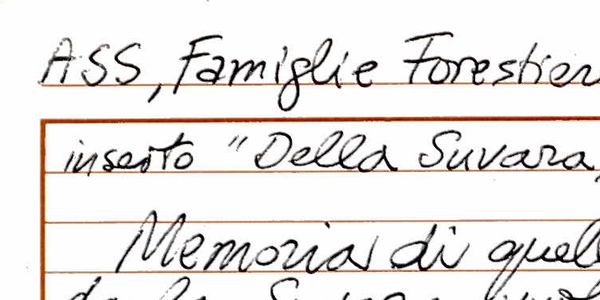 ASS, Famiglie Forestier
inserto "Della Suvara,
Memoria di quel